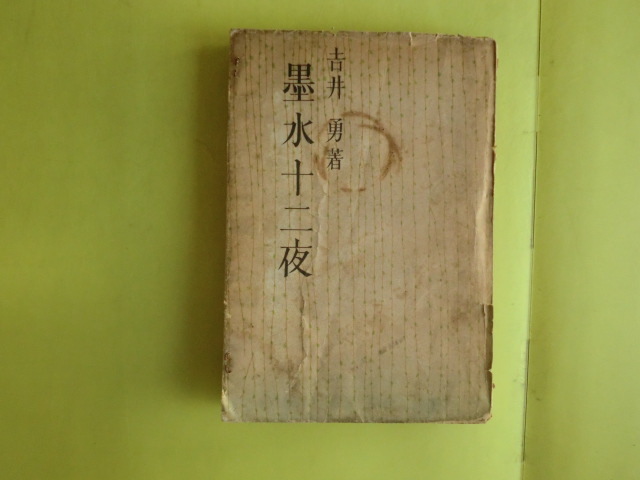 吉井勇著
墨水十二夜